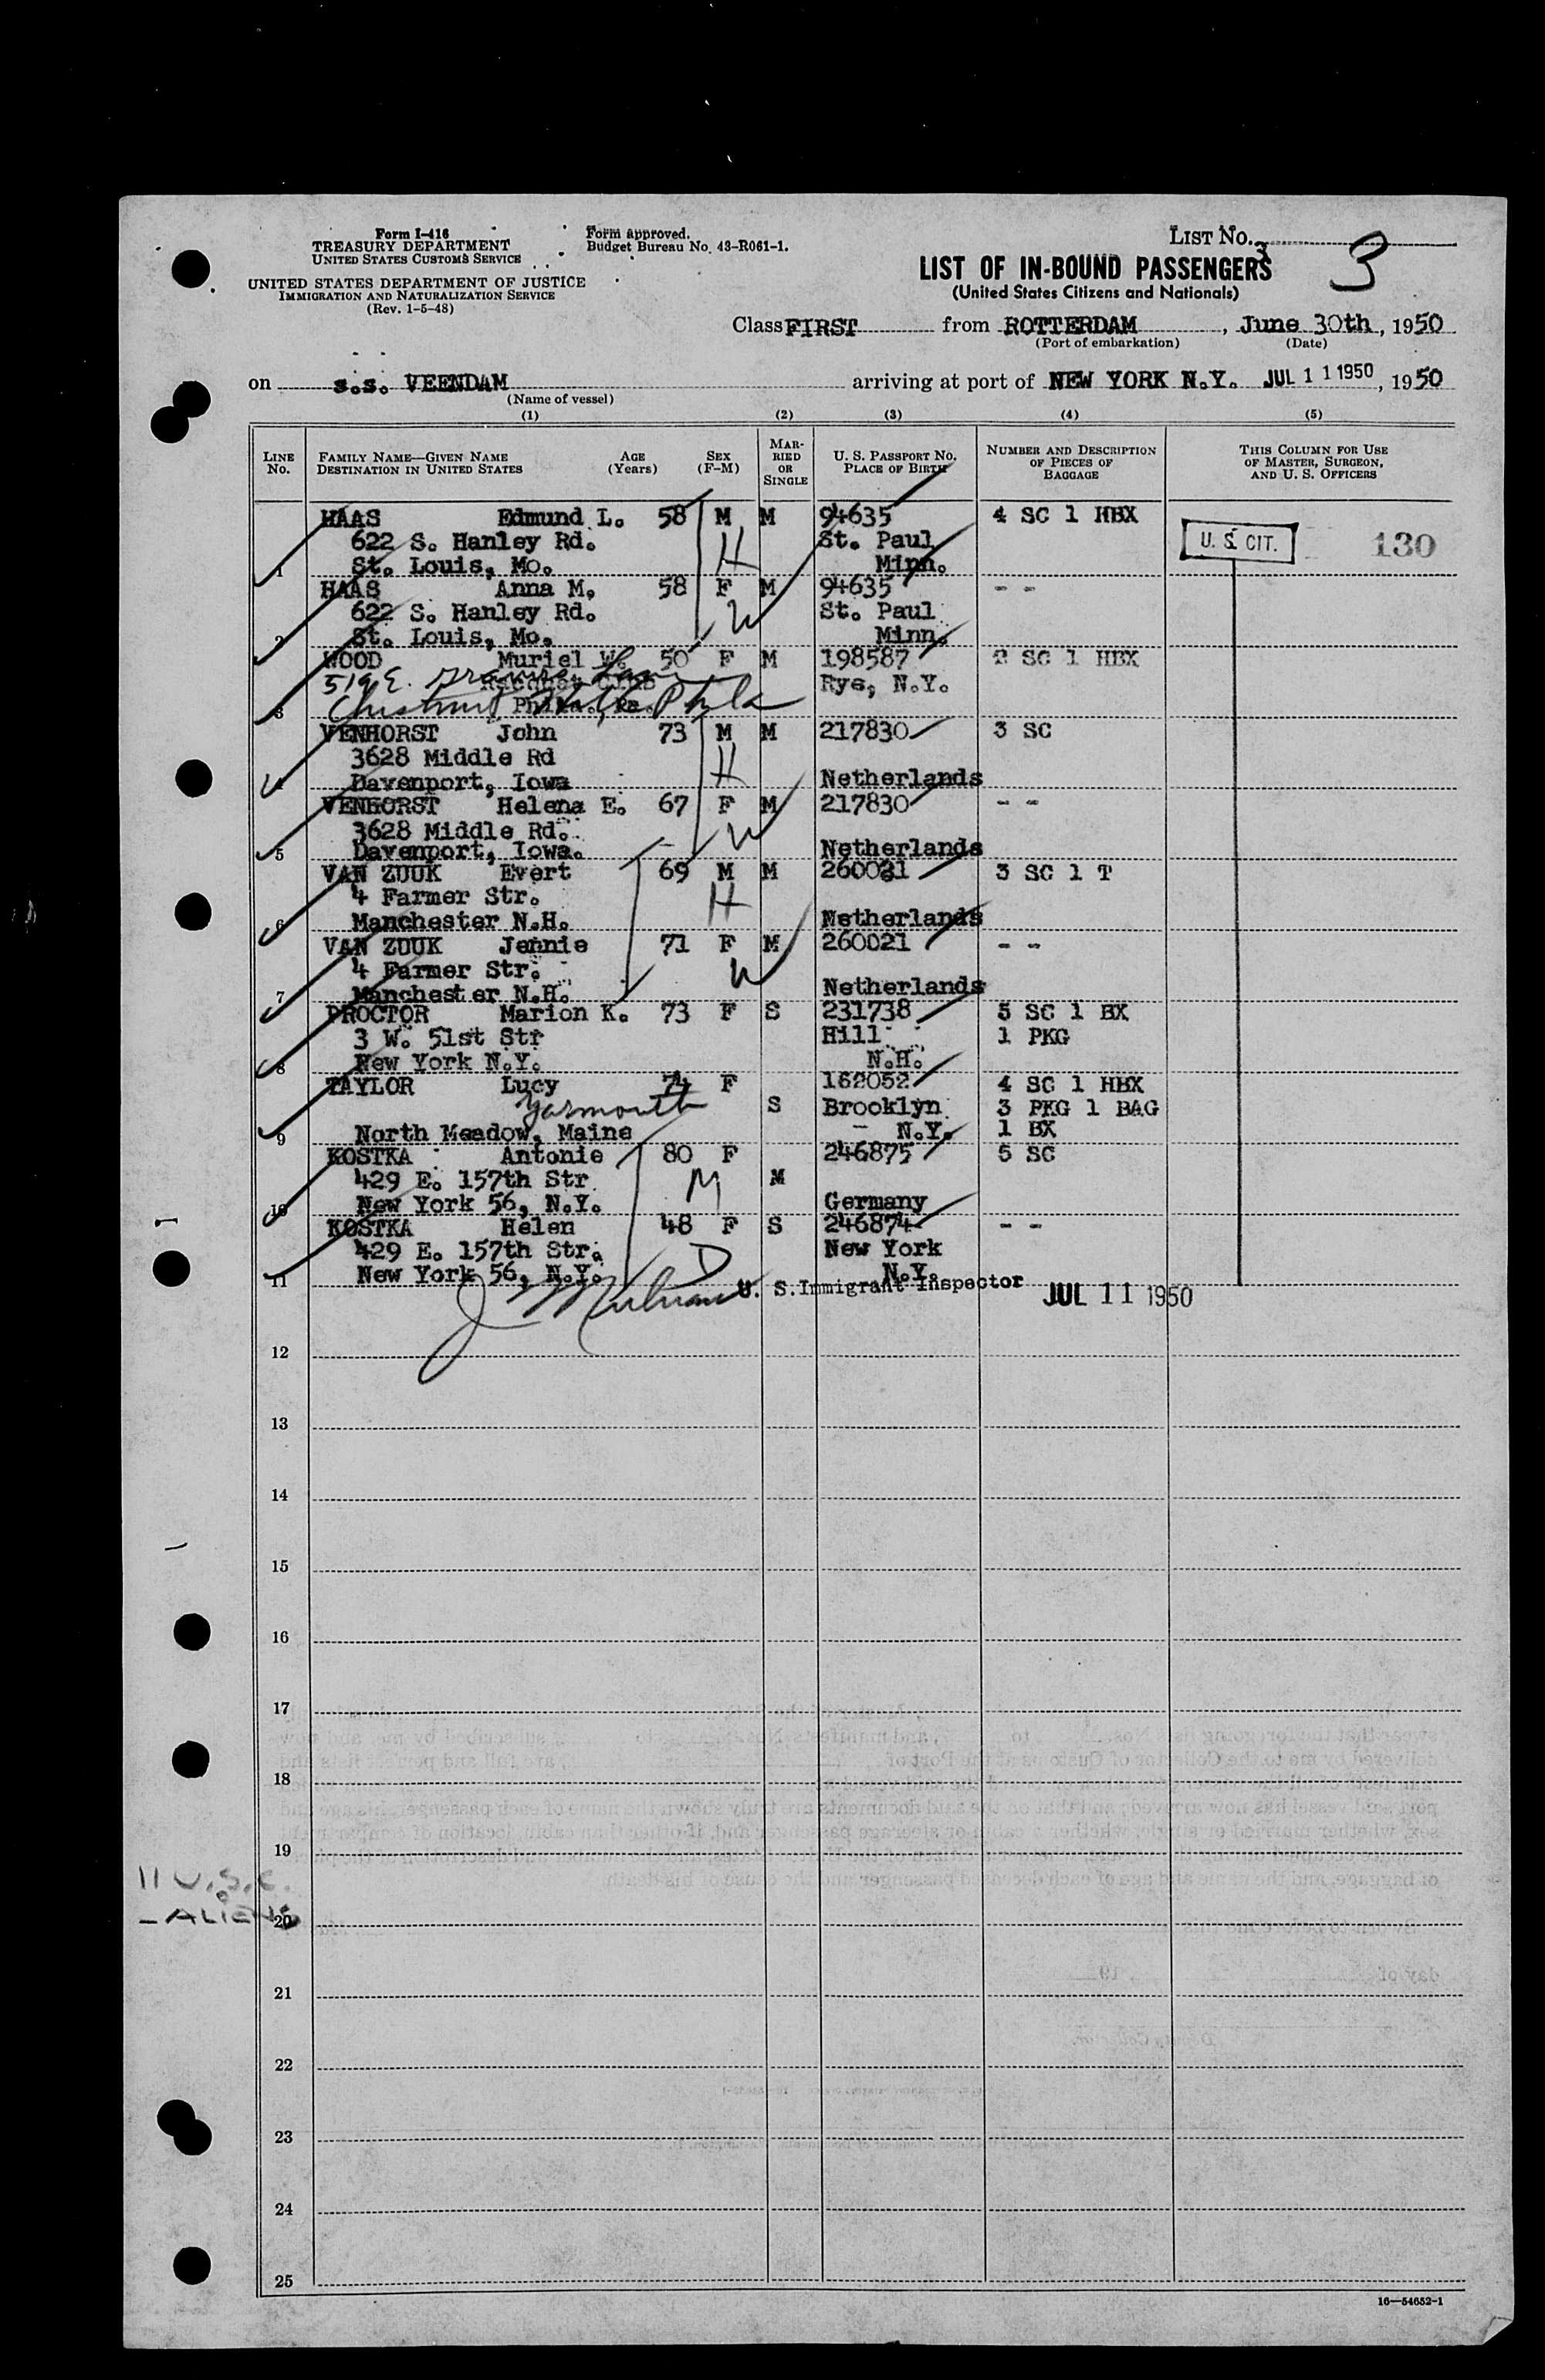 Form I-416
TREASURY DEPARTMENT
UNITED STATES CUSTOMS SERVICE
UNITED STATES DEPARTMENT OF JUSTICE
IMMIGRATION AND NATURALIZATION SERVICE
(Rev. 1-5-48)
Form approved.
Budget Bureau No. 43-R061-1.
LIST NO. 3
3
LIST OF IN-BOUND PASSENGERS
(United States Citizens and Nationals)
Class FIRST from ROTTERDAM, June 30th, 1950
(Port of embarkation) (Date)
on s.s. VEENDAM arriving at port of NEW YORK N.Y. JUL 11 1950, 1950
(Name of vessel)
(1) (2) (3) (4) (5)
LINE No. FAMILY NAME—GIVEN NAME DESTINATION IN UNITED STATES AGE (Years) SEX (F-M) MARRIED OR SINGLE U. S. PASSPORT NO. PLACE OF BIRTH NUMBER AND DESCRIPTION OF PIECES OF BAGGAGE THIS COLUMN FOR USE OF MASTER, SURGEON, AND U. S. OFFICERS
HAAS Edmund L. 58 M M 94635 4 SC 1 HBX
622 S. Hanley Rd. H St. Paul U. S. CIT. 130
1 St. Louis, Mo. Minn.
HAAS Anna M. 58 F M 94635 - -
622 S. Hanley Rd. W St. Paul
2 St. Louis, Mo. Minn.
WOOD Muriel W. 50 F M 198587 2 SC 1 HBX
519 E. Lane Rye, N.Y.
3 Chestnut Hill Phila
VENHORST John 73 M M 217830 3 SC
3628 Middle Rd H
4 Davenport, Iowa Netherlands
VENHORST Helena E. 67 F M 217830 - -
3628 Middle Rd. W
5 Davenport, Iowa. Netherlands
VAN ZUUK Evert 69 M M 260021 3 SC 1 T
4 Farmer Str. H
6 Manchester N.H. Netherlands
VAN ZUUK Jennie 71 F M 260021 - -
4 Farmer Str. W
7 Manchester N.H. Netherlands
PROCTOR Marion K. 73 F S 231738 5 SC 1 BX
3 W. 51st Str Hill 1 PKG
8 New York N.Y. N.H.
TAYLOR Lucy 74 F 162052 4 SC 1 HBX
Yarmouth S Brooklyn 3 PKG 1 BAG
9 North Meadow, Maine N.Y. 1 BX
KOSTKA Antonie 80 F 246875 5 SC
429 E. 157th Str M M
10 New York 56, N.Y. Germany
KOSTKA Helen 48 F S 246874 - -
429 E. 157th Str. D New York
11 New York 56, N.Y. N.Y.
U. S. Immigrant Inspector JUL 11 1950
12
13
14
15
16
17
18
19
11 U.S.C.
20
- ALIENS
21
22
23
24
25
16—54652-1